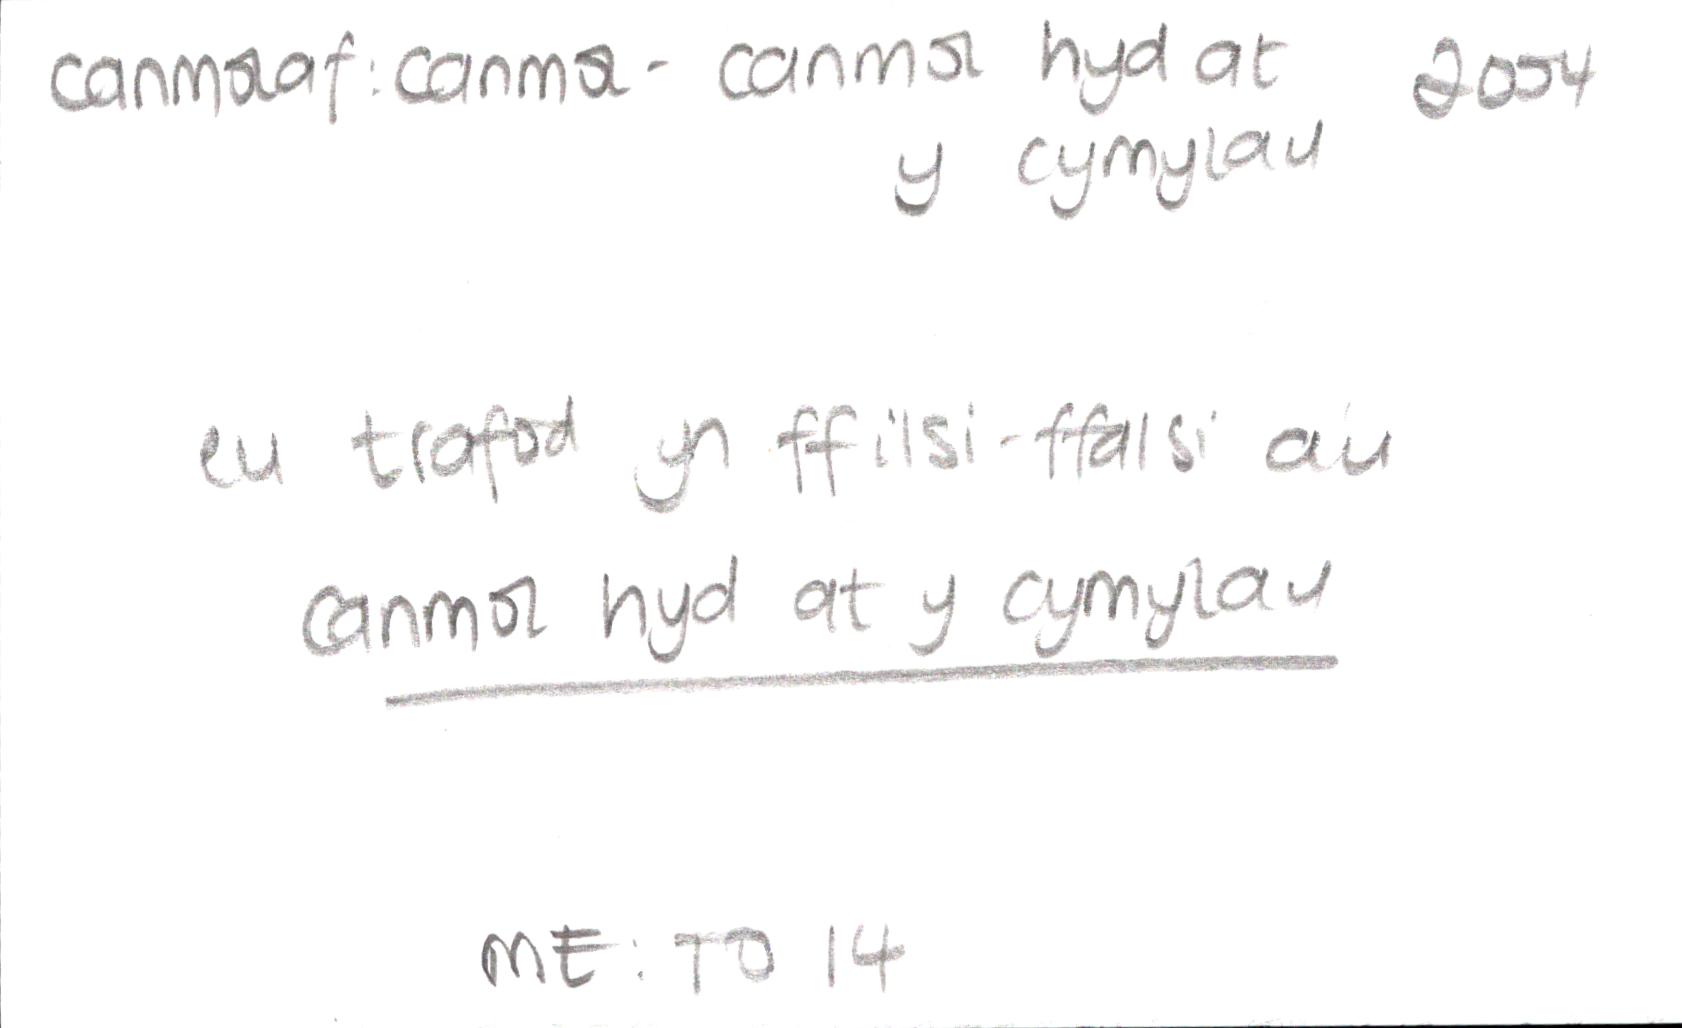 canmolaf: canmol - canmol hyd at 2054
y cymylau
eu trafod yn ffilsi-ffalsi a'u
canmol hyd at y cymylau
ME: TO 14